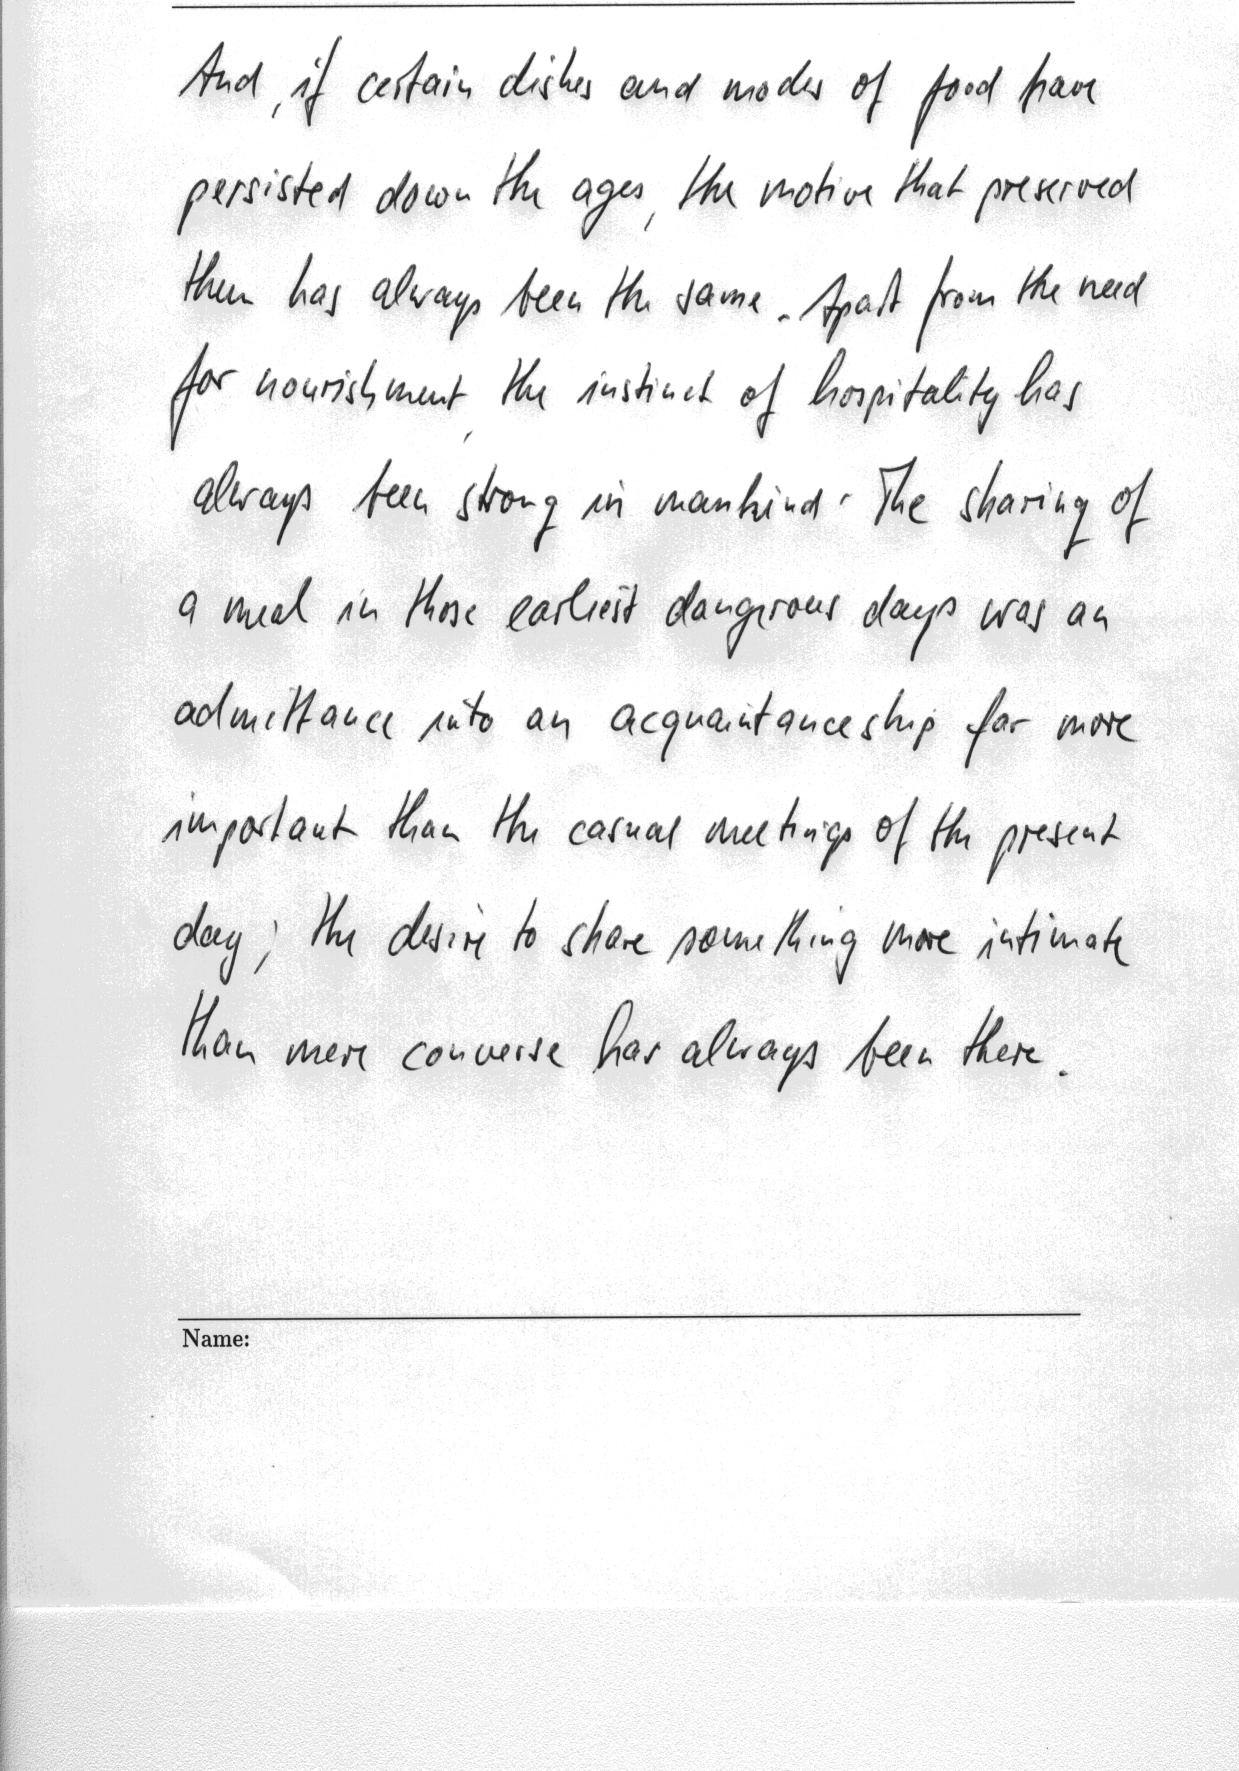 And, if certain dishes and modes of food have
persisted down the ages, the motive that preserved
them has always been the same. Apart from the need
for nourishment, the instinct of hospitality has
always been strong in mankind. The sharing of
a meal in those earliest dangerous days was an
admittance into an acquaintanceship far more
important than the casual meetings of the present
day; the desire to share something more intimate
than mere converse has always been there.
Name: